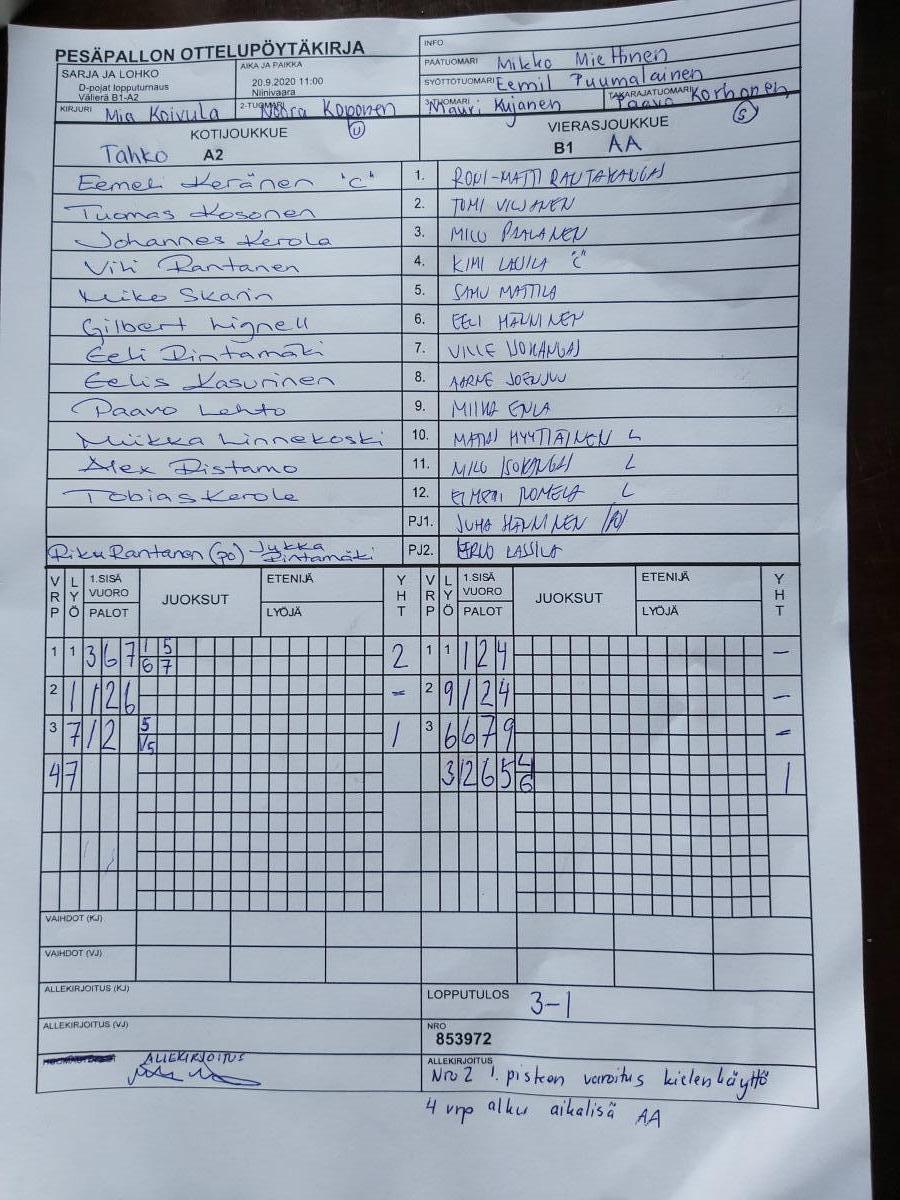 PESÄPALLON OTTELUPÖYTÄKIRJA
INFO
SARJA JA LOHKO
D-pojat lopputurnaus
Välierä B1-A2
AIKA JA PAIKKA
20.9.2020 11:00
Niinivaara
PÄÄTUOMARI Mikko Miettinen
SYÖTTÖTUOMARI Eemil Puumalainen
KIRJURI Mia Koivula
2-TUOMARI Noora Koponen
3-TUOMARI Mauri Kyjanen
TAKARAJATUOMARI Paavo Korhonen
KOTIJOUKKUE U
Tahko A2
VIERASJOUKKUE S
B1 AA
Eemeli Keränen "C" 1. RONI-MATTI RAUTAKANGAS
Tuomas Kosonen 2. TOMI VILJANEN
Johannes Kerola 3. MILO PAALANEN
Vili Rantanen 4. KIMI LASSILA "C"
Miko Skarin 5. SAMU MATTILA
Gilbert Lignell 6. EELI HÄNNINEN
Eeli Rintamäki 7. VILLE ISOKANGAS
Eelis Kasurinen 8. AARNE JOENSUU
Paavo Lehto 9. MIIKA ENLA
Miikka Linnekoski 10. MATIAS HYYTIÄINEN L
Alex Ristamo 11. MILO ISOKANGAS L
Tobias Kerole 12. L
PJ1. JUHA HÄNNINEN (PO)
Riku Rantanen (po) Jukka Rintamäki PJ2. ERNO LASSILA
VRP LYÖ 1.SISÄ VUORO PALOT JUOKSUT ETENIJÄ LYÖJÄ YHT VRP LYÖ 1.SISÄ VUORO PALOT JUOKSUT ETENIJÄ LYÖJÄ YHT
1 1 3 6 7 1 5 2 1 1 1 2 4 –
6 7
2 1 1 2 6 – 2 9 1 2 4 –
3 7 1 2 5 1 3 6 6 7 9 –
1/5
4 7 3 2 6 5 4 1
6
VAIHDOT (KJ)
VAIHDOT (VJ)
ALLEKIRJOITUS (KJ)
LOPPUTULOS 3–1
ALLEKIRJOITUS (VJ)
NRO
853972
ALLEKIRJOITUS
ALLEKIRJOITUS
Nro 2 1. pisteen varoitus kielenkäyttö
4 vrp alku aikalisä AA